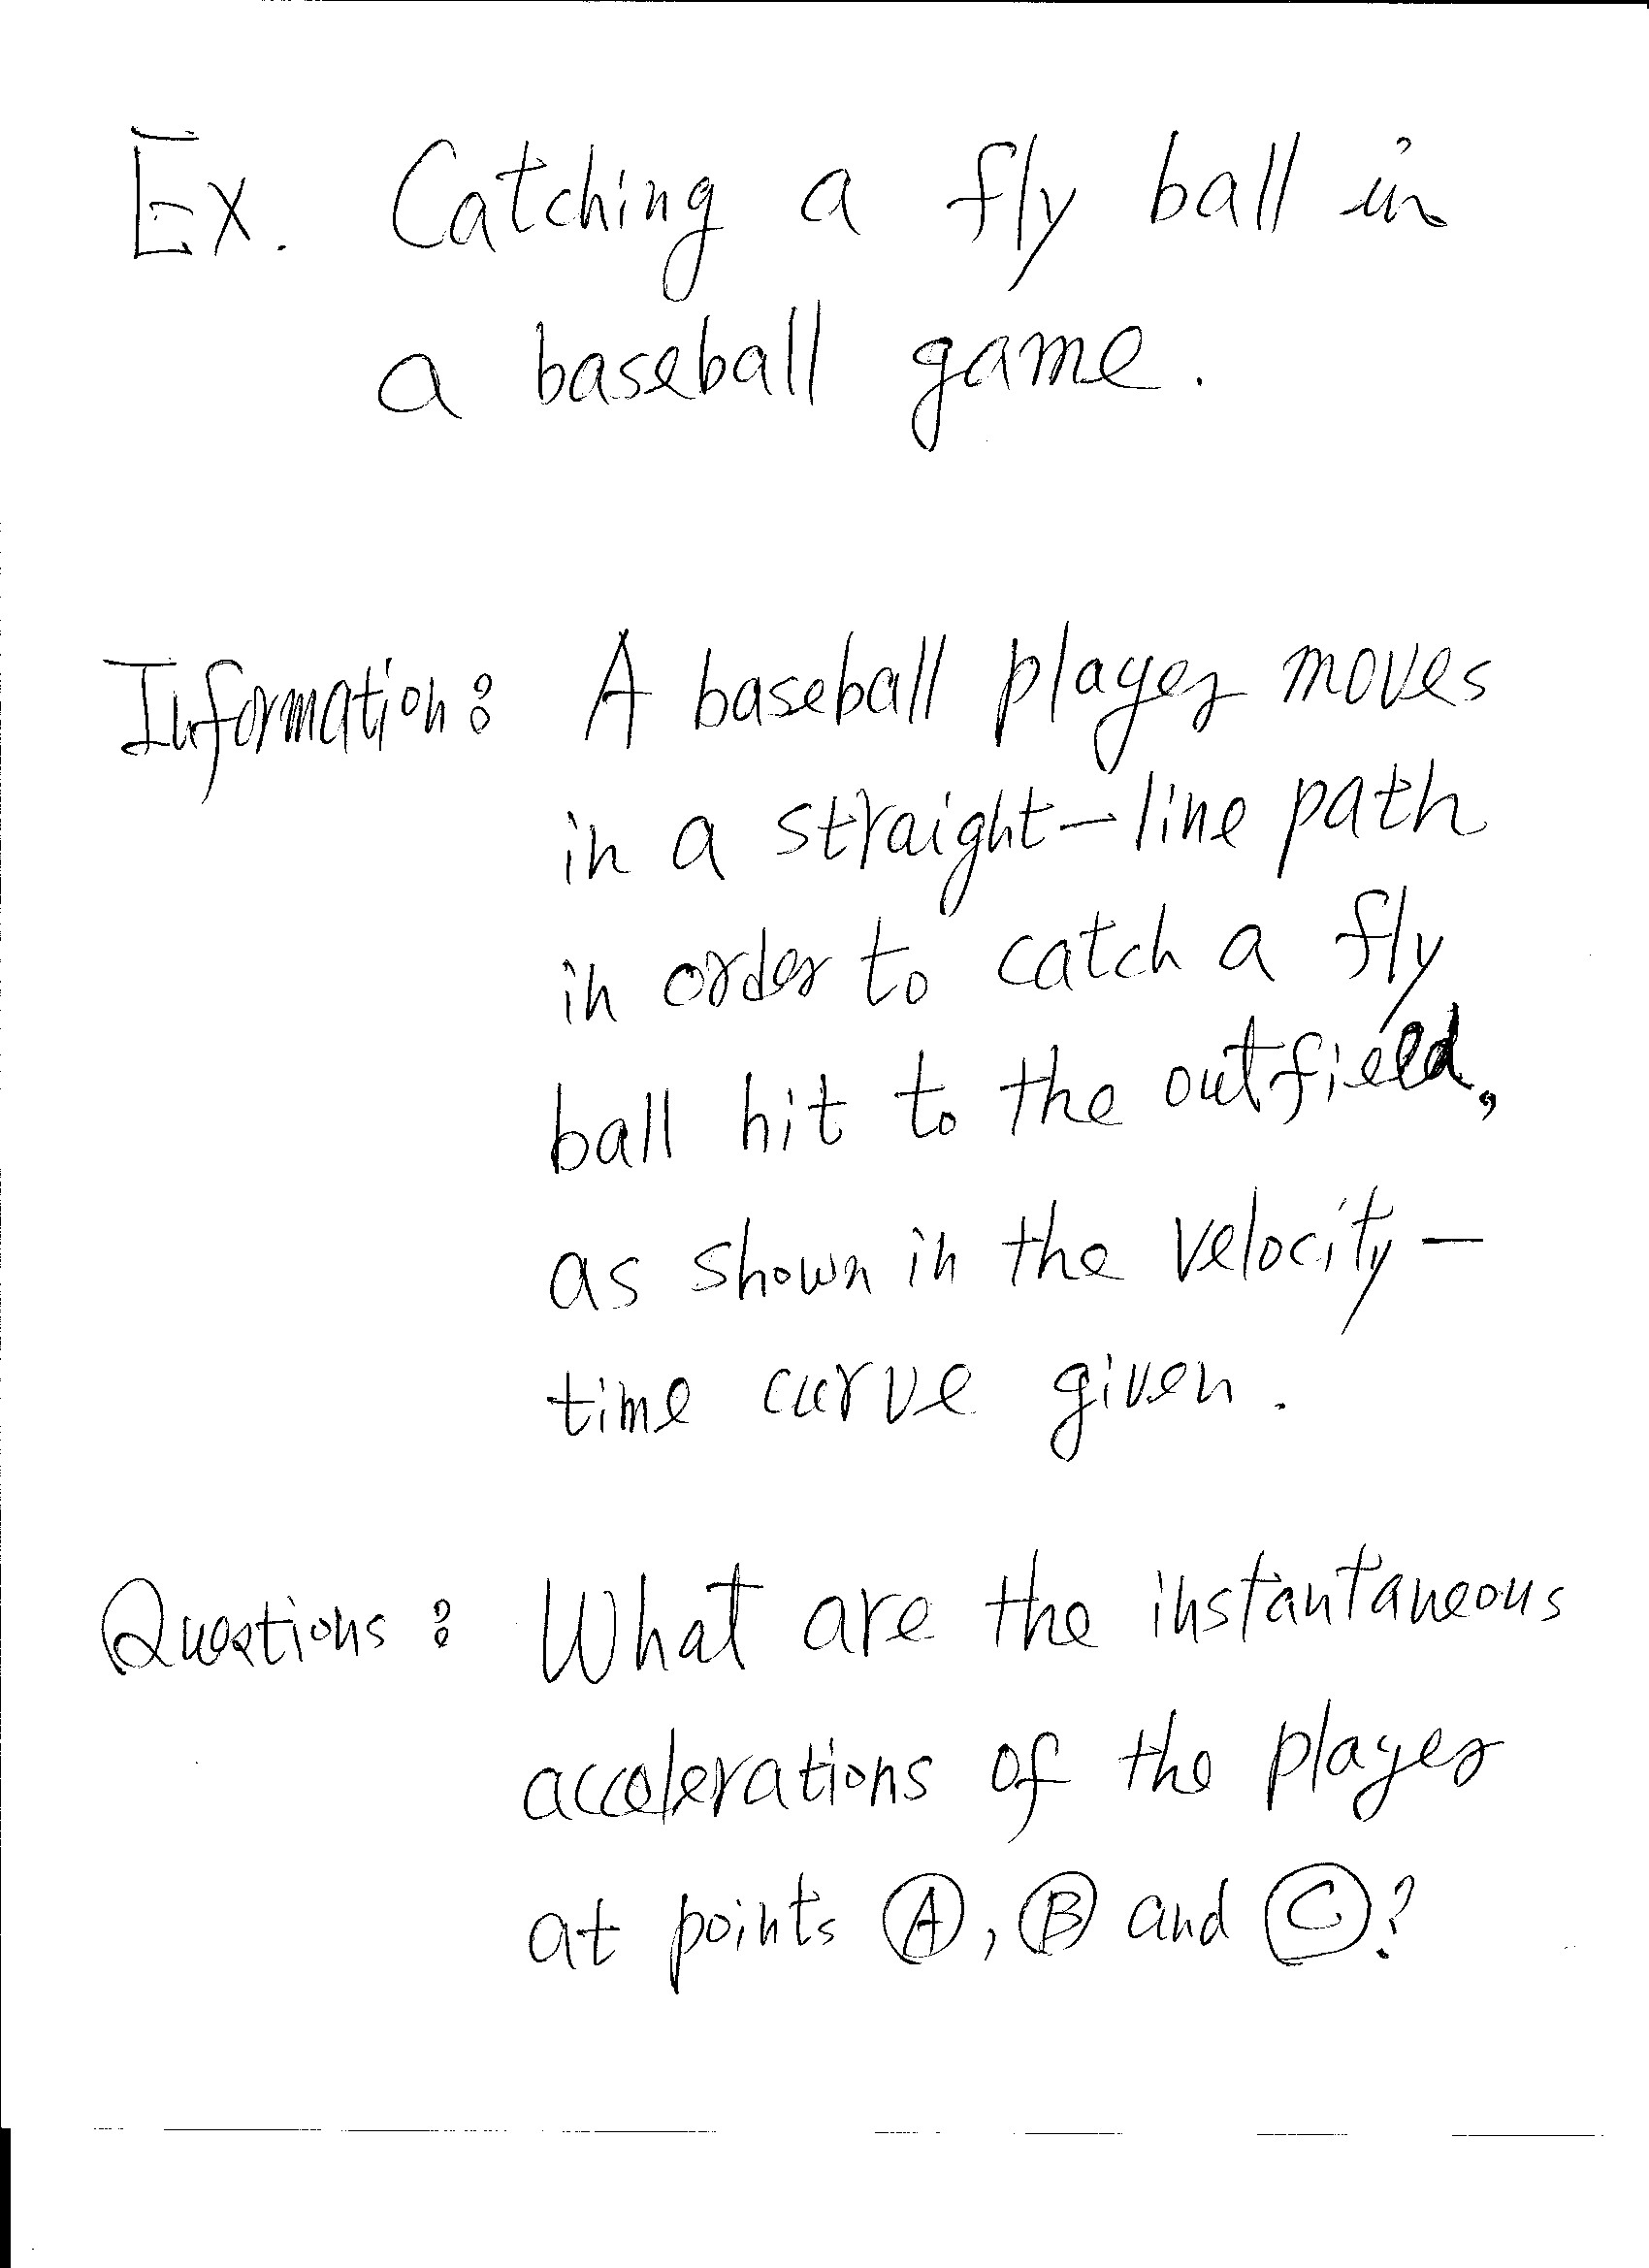 Ex. Catching a fly ball in
a baseball game.
Information: A baseball player moves
in a straight-line path
in order to catch a fly
ball hit to the outfield,
as shown in the velocity-
time curve given.
Questions: What are the instantaneous
accelerations of the player
at points Ⓐ, Ⓑ and Ⓒ?